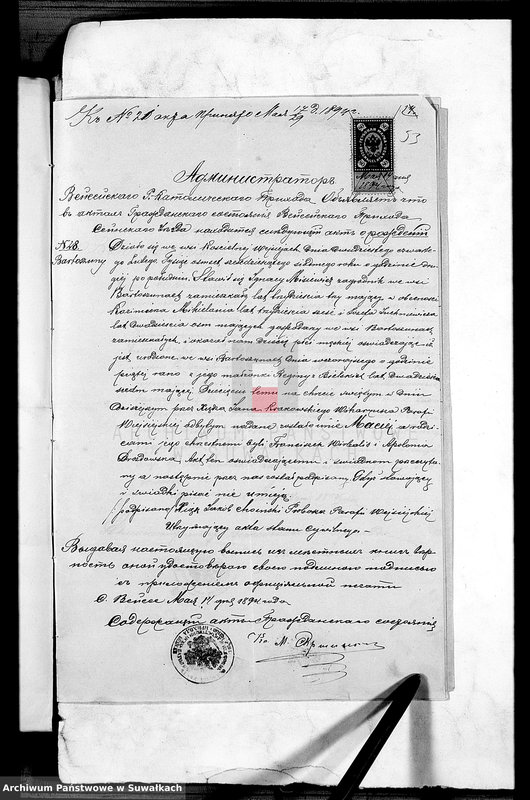 Къ № 21 акта принято Мая 17/29 д. 1894 г.
53
Мая 17 дня
1894 года
Администраторъ
Вейсейскаго Р. Католическаго Прихода Объявляетъ что
въ актахъ Гражданскаго состоянія Вейсейскаго Прихода
Сейнскаго Уѣзда находится слѣдующій актъ о рожденіи
№ 48.
Bartoszuny
Działo się we wsi Kościelnej Wejsiejach dnia dwudziestego czwartego
Lutego tysiąc ośmset sześćdziesiątego siódmego roku o godzinie dru-
giej po południu. Stawił się Ignacy Misiewicz zagrodnik we wsi
Bartoszunach zamieszkały lat trzydzieści trzy mający, w obecności
Kazimierza Mikielania lat trzydzieści sześć i Józefa Juchniewicza
lat dwadzieścia ośm mających gospodarzy we wsi Bartoszunach
zamieszkałych, i okazał nam dziecię płci męzkiej oświadczając iż
jest urodzone we wsi Bartoszunach dnia wczorajszego o godzinie
piątej rano z jego małżonki Reginy z Bielskich lat dwadzieścia
siedm mającej. Dziecięciu temu na chrzcie świętym w dniu
dzisiejszym przez Księdza Jana Krakowskiego Wikaryusza Parafi
Wejsiejskiej odbytym nadane zostało imie Maciej a rodzi-
cami jego chrzestnemi byli Franciszek Wirbalis i Apolonia
Drozdowska. Akt ten oświadczającemu i świadkom przeczyta-
ny a następnie przez nas został podpisany. Gdyż stawający
i świadki pisać nie umieją.
/podpisano/ Ksiądz Jakób Choiński Proboszcz Parafi Wejsiejskiej
Utrzymujący akta stanu Cywilnego.
Выдавая настоящую выпись изъ метрич. книгъ вѣр-
ность оной удостовѣряю своею подписью
съ приложеніемъ оффиціальной печати
С. Вейсее Мая 17 дня 1894 года
Содержащій акты Гражданскаго состоянія
Кс. М.
Archiwum Państwowe w Suwałkach